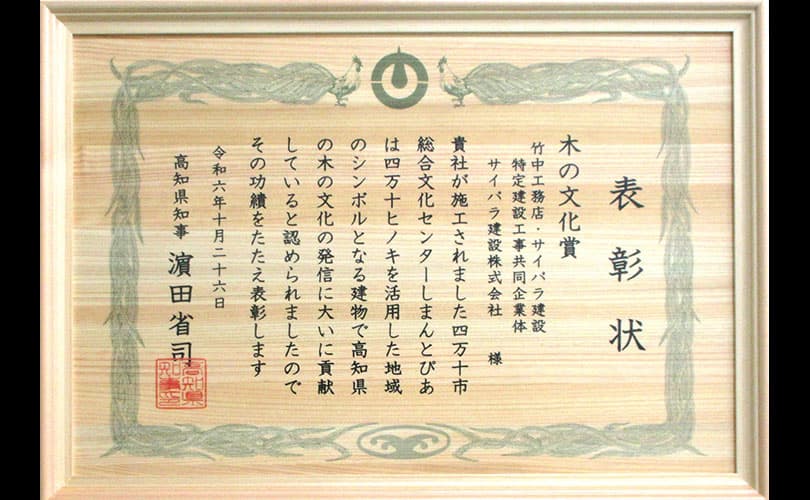 表彰状
木の文化賞
竹中工務店・サイバラ建設
特定建設工事共同企業体
サイバラ建設株式会社 様
貴社が施工されました四万十市
総合文化センターしまんとぴあ
は四万十ヒノキを活用した地域
のシンボルとなる建物で高知県
の木の文化の発信に大いに貢献
していると認められましたので
その功績をたたえ表彰します
令和六年十月二十六日
高知県知事 濵田省司
高知県
知事印